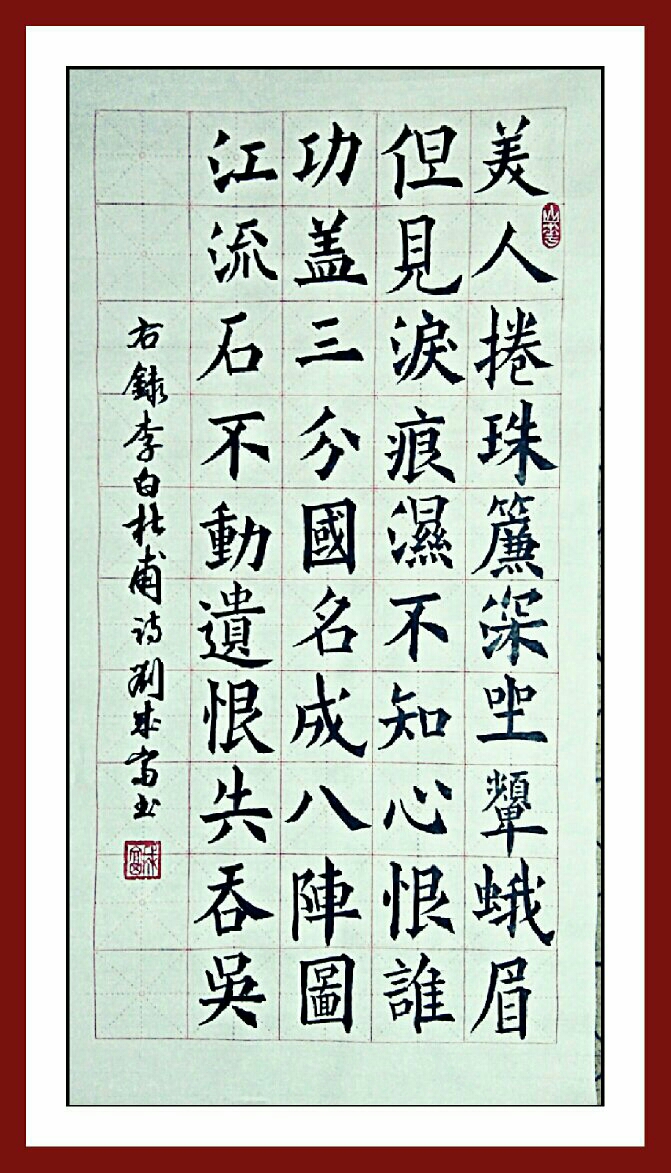 美人捲珠簾深坐顰蛾眉
但見淚痕濕不知心恨誰
功盖三分國名成八陣圖
江流石不動遺恨失吞吳
右錄李白杜甫诗劉成富书
成富